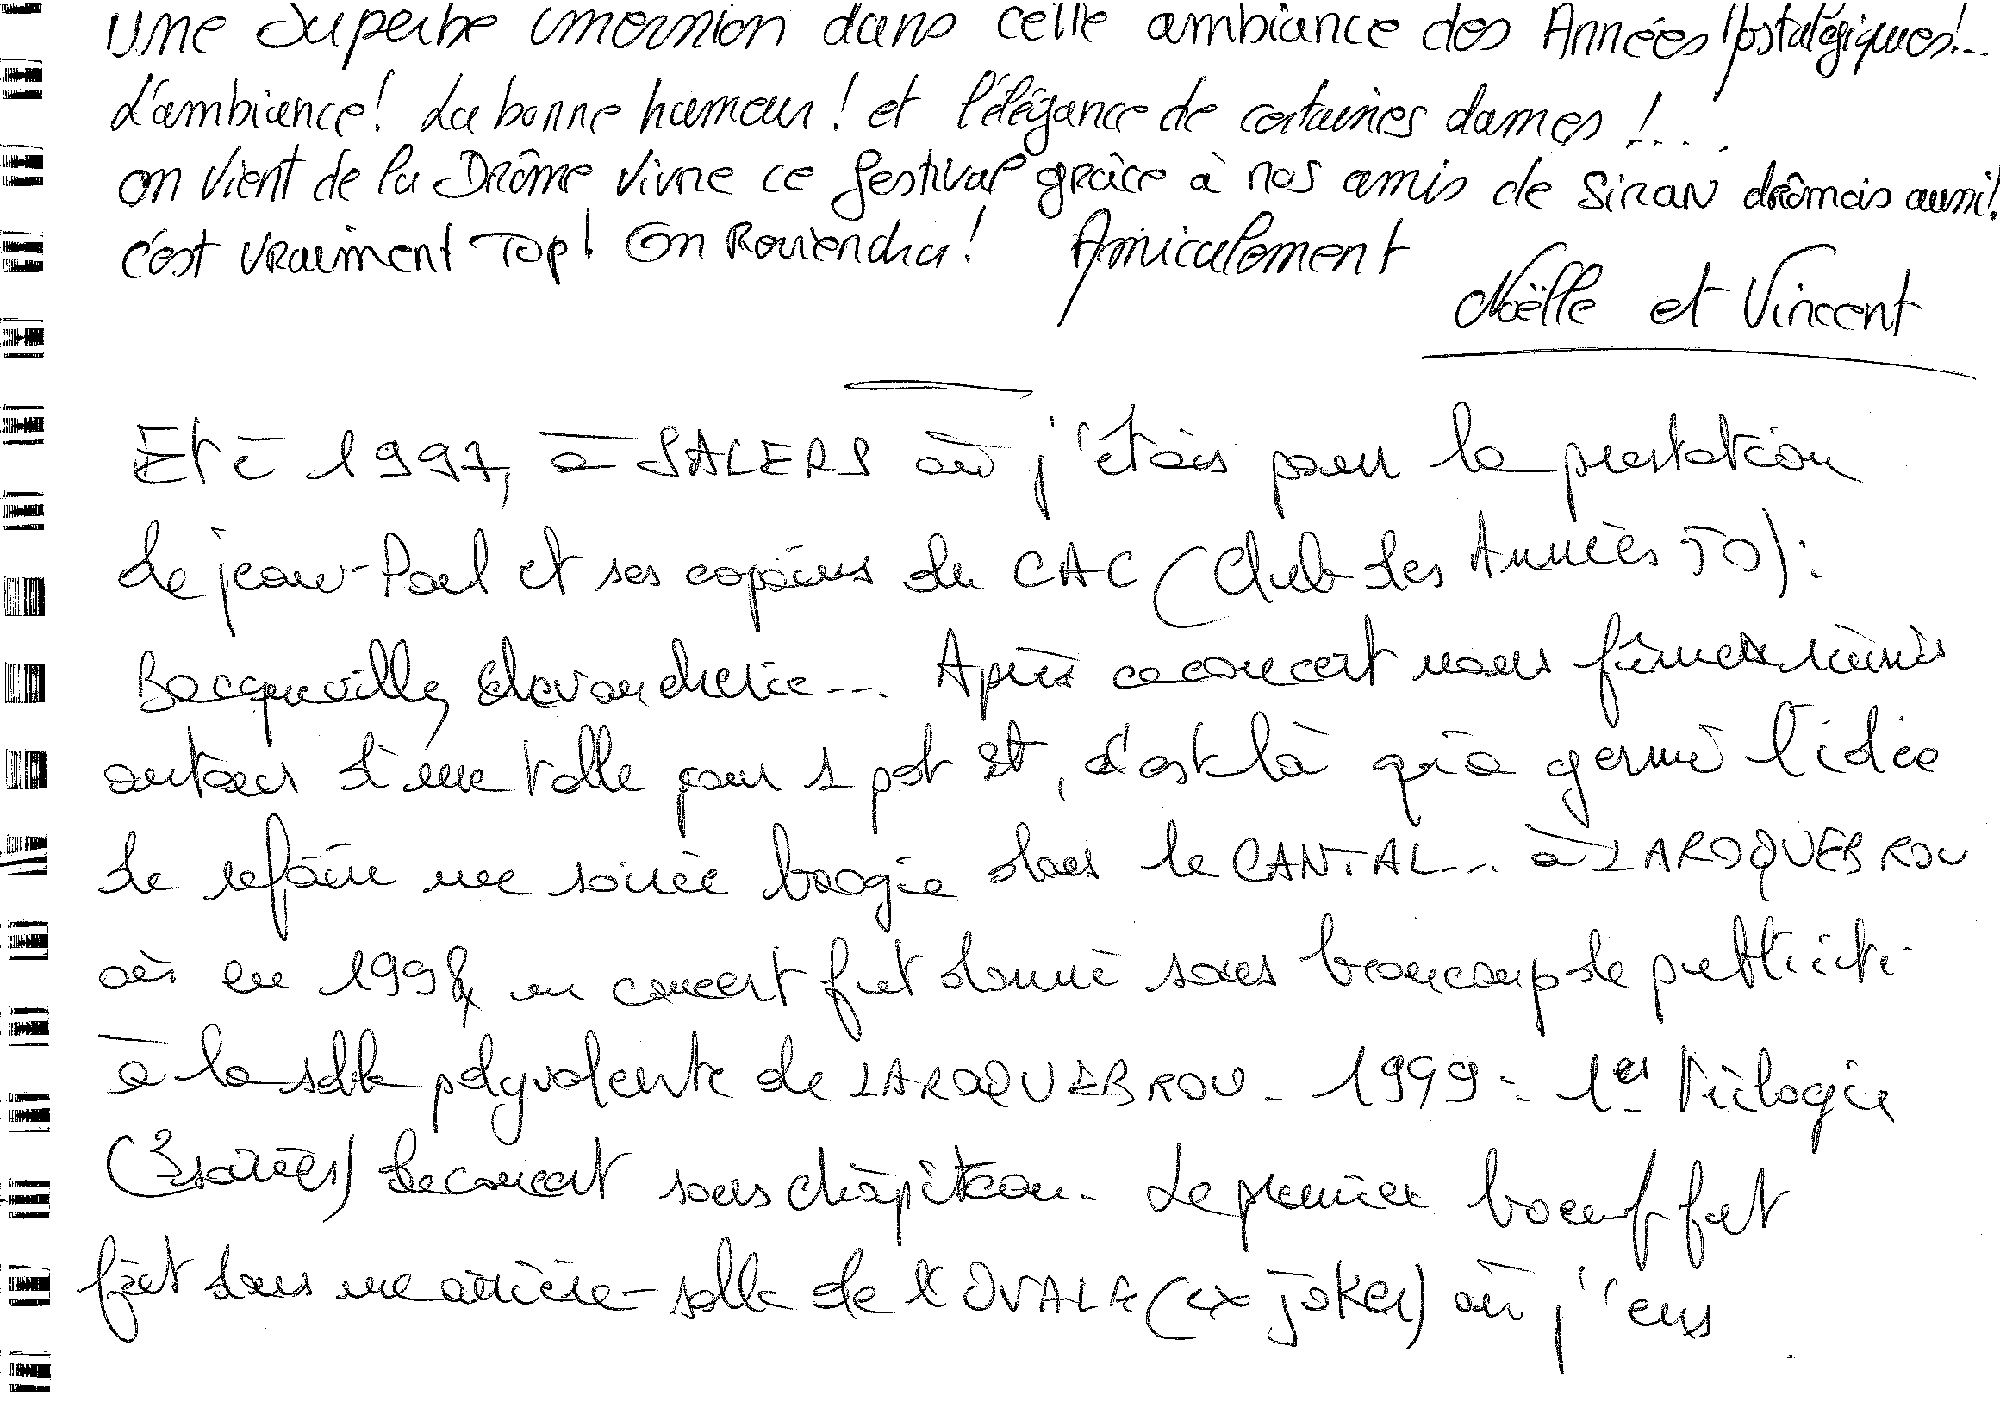 Une superbe immersion dans cette ambiance des Années Nostalgiques!...
L'ambiance! La bonne humeur! et l'élégance de certaines dames!...
on vient de la Drôme vivre ce festival grâce à nos amis de Siran drômois aussi!
c'est vraiment Top! On Reviendra! Amicalement
Noëlle et Vincent
Eté 1997, à SALERS où j'étais pour la prestation
de jean-Paul et ses copains du CAC (Club des Années 50):
Bacqueville, ... Après ce concert nous fûmes réunis
autour d'une table pour 1 pot et, c'est là qu'a germé l'idée
de refaire une soirée boogie dans le CANTAL... à LAROQUEBROU
où en 1998 un concert fut donné sans beaucoup de publicité
à la salle polyvalente de LAROQUEBROU - 1999: 1er Trilogie
(3 soirées) de concert sous châpiteau. Le premier boeuf fut
fait dans une arrière-salle de l'OVALE (ex joker) où j'eus